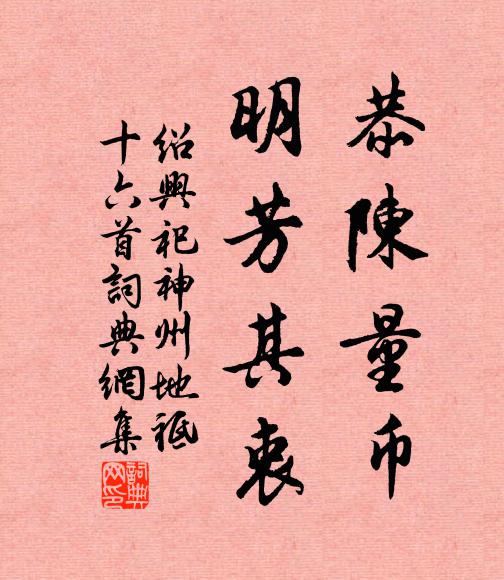 恭陳量币
明芳其衷
紹興祀神州地祇
十六首詞典網集
詞典網印